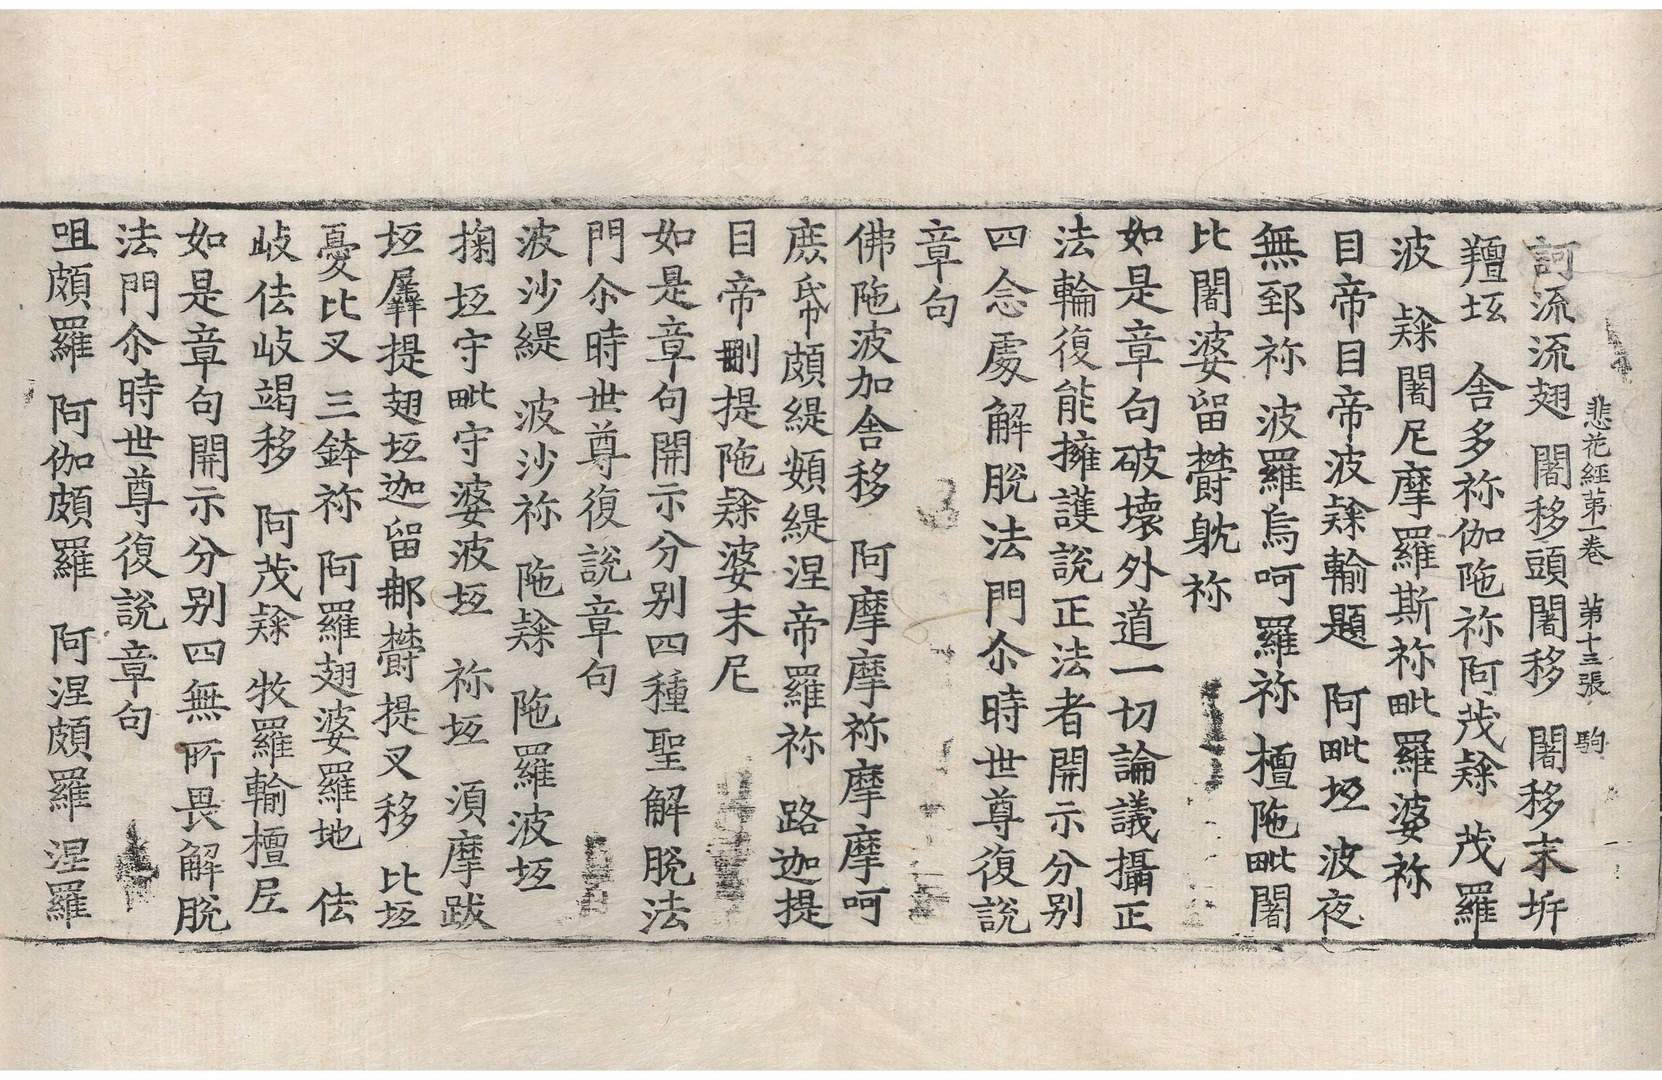 悲花經第一卷　第十三張　駒
訶流流翅　闍移頭闍移　闍移末坼
羶坻　舍多祢伽陁祢阿茂𨽻　茂羅
波　𨽻闍尼摩羅斯祢毗羅婆祢
目帝目帝波𨽻輸題　阿毗坻　波夜
無郅祢　波羅烏呵羅祢　檀陁毗闍
比闍婆留欝躭祢
如是章句破壞外道一切論議攝正
法輪復能擁護說正法者開示分別
四念處解脫法門尒時世尊復說
章句
佛陁波加舍移　阿摩摩祢摩摩呵
庹帋頗緹頞緹涅帝羅祢　路迦提
目帝刪提陁𨽻婆末尼
如是章句開示分別四種聖解脫法
門尒時世尊復說章句
波沙緹　波沙祢　陁𨽻　陁羅波坻
掬坻守毗守婆波坻　祢坻　湏摩跋
坻羼提翅坻迦留那欝提叉移　比坻
憂比叉　三鉢祢　阿羅翅婆羅地　佉
岐佉岐竭移　阿茂𨽻　牧羅輸檀𡰱
如是章句開示分別四無所畏解脫
法門尒時世尊復說章句
咀頗羅　阿伽頗羅　阿涅頗羅　涅羅